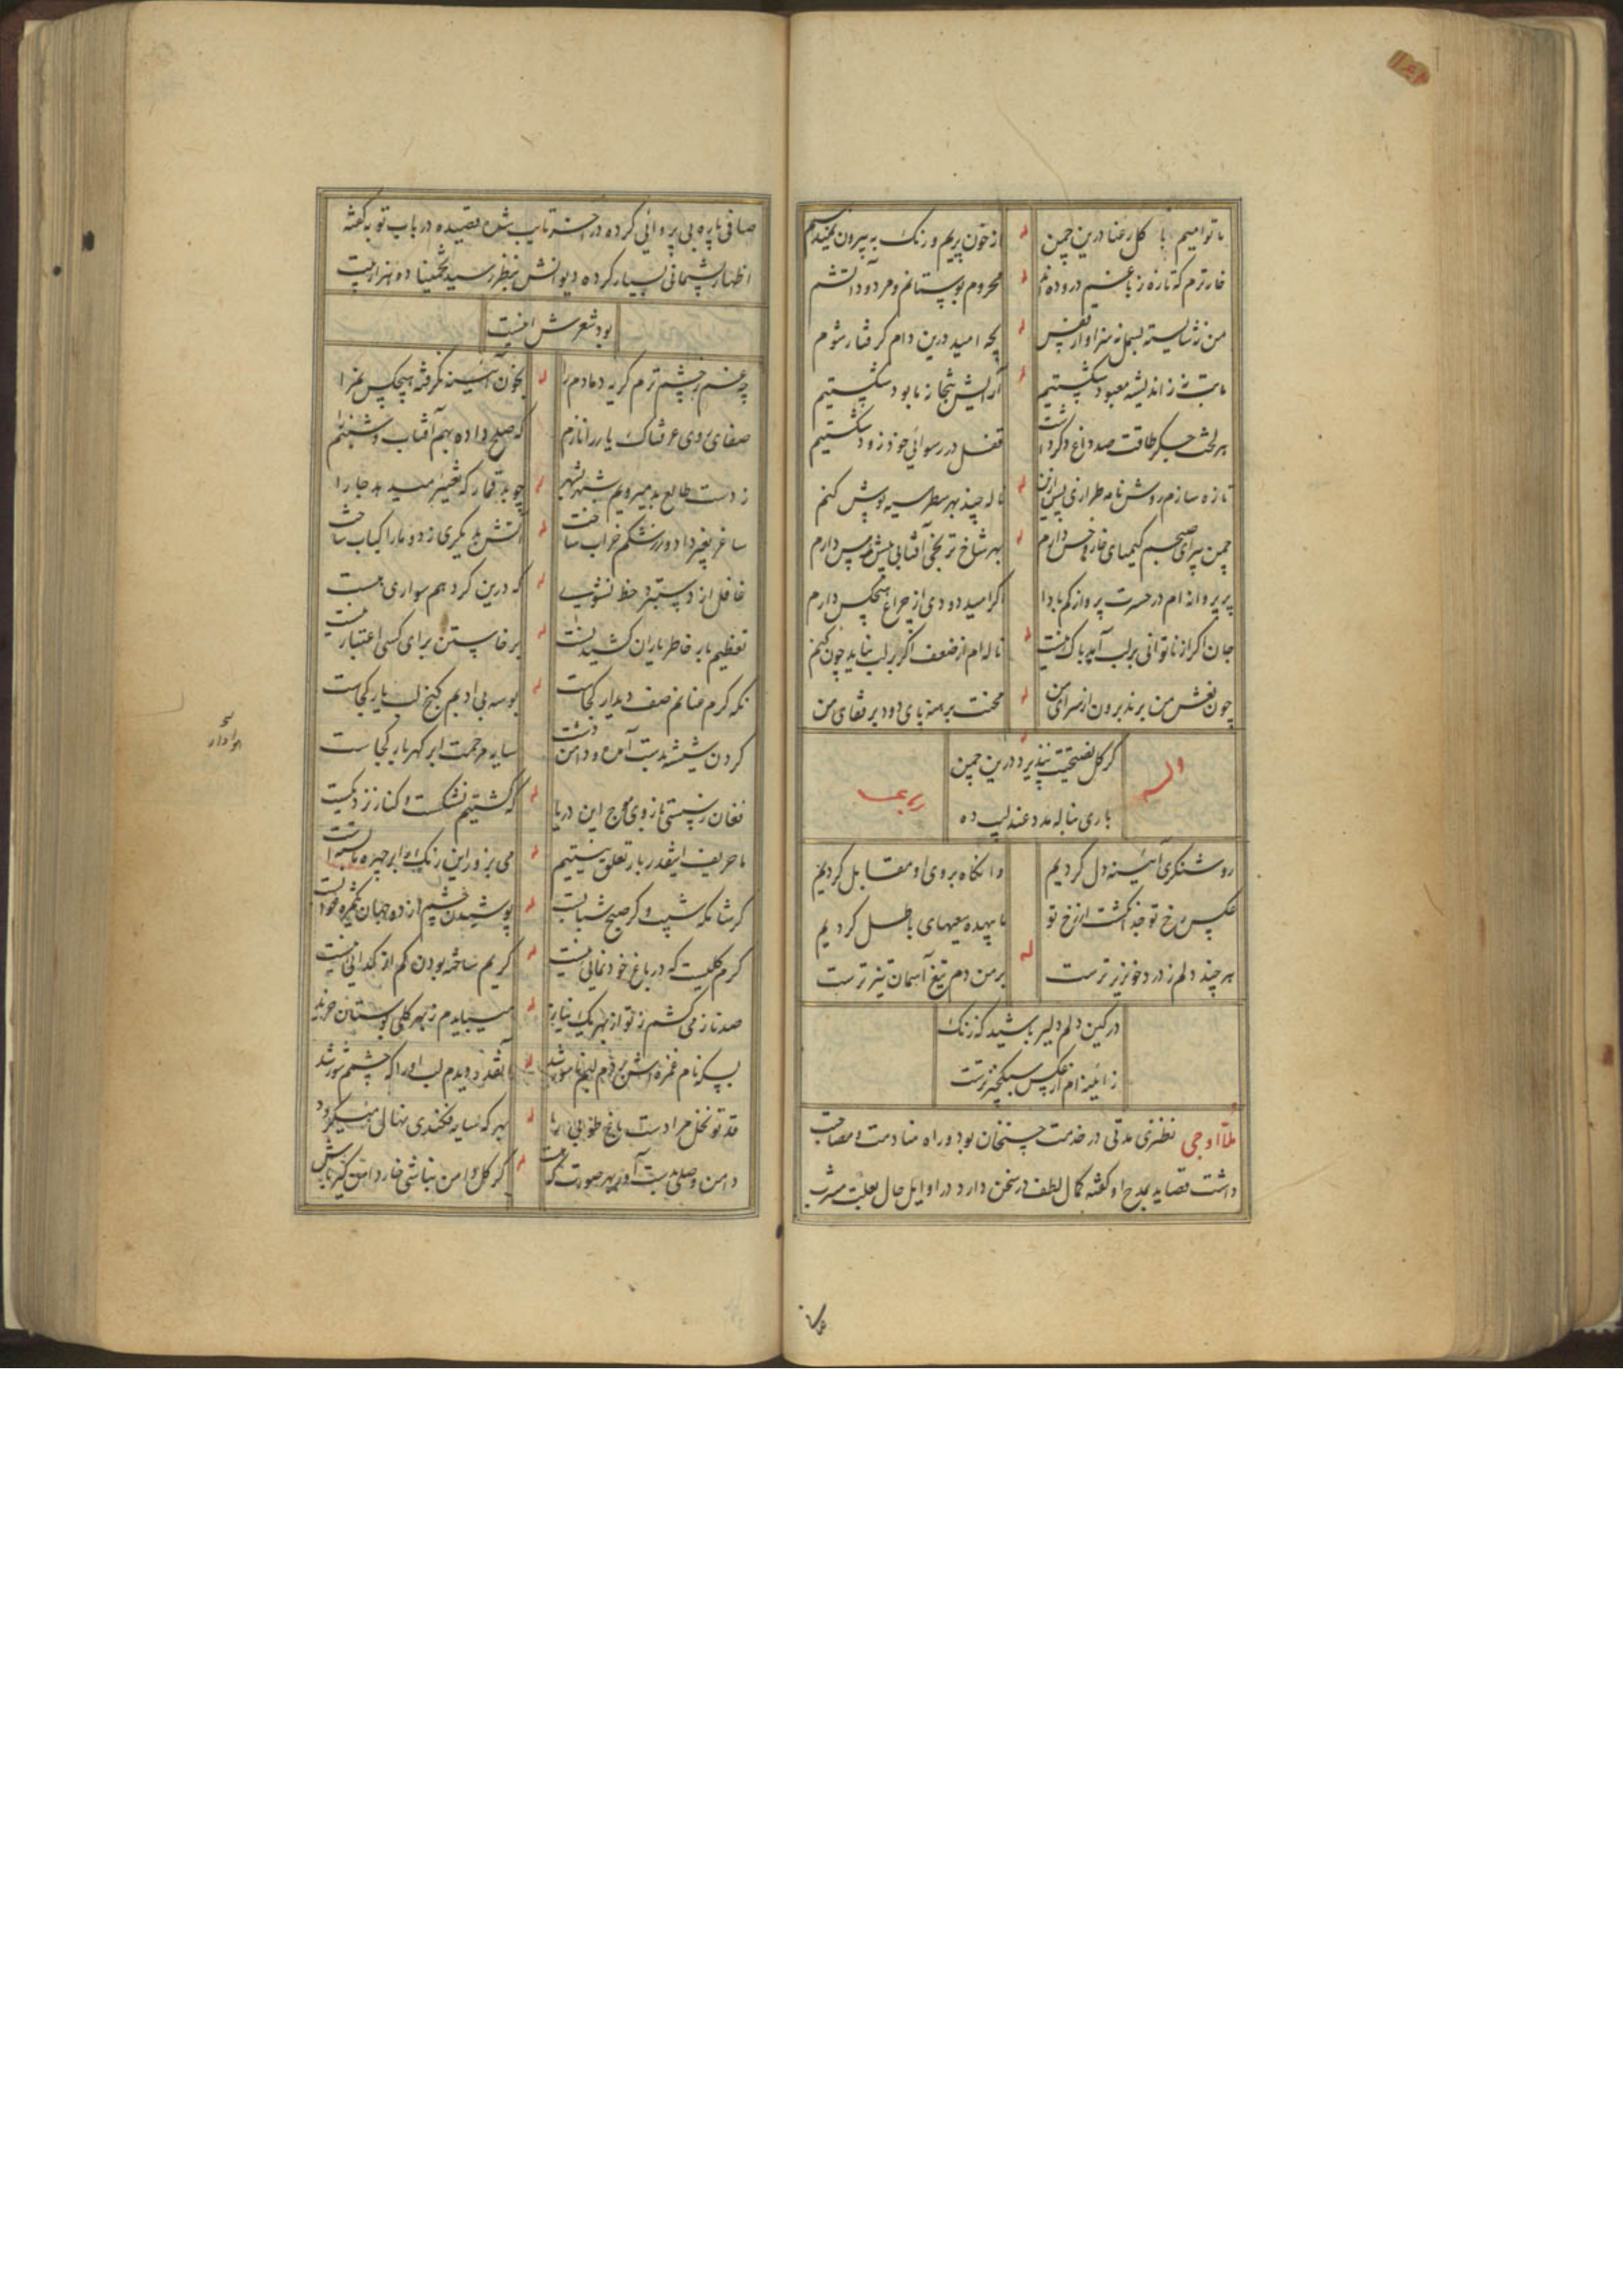 ما توامیم با گل رعنا درین چمن از خون پریم و رنگ به بیرون نمیدهیم
خار ترم که تازه ز باغم دروده‌اند محروم بوستانم و مردود آتشم
من نه شایسته بسمل نه سزاوار قفس بچه امید درین دام گرفتار شوم
ما بت نه ز اندیشه معبود شکستیم آرایش بتخانه نابود شکستیم
هر لخت جگر طاقت صد داغ دگر داشت قفل در رسوائی خود زود شکستیم
تازه سازم روش نامه طرازی پس ازین ناله چند بهر سطر سیه پوش کنم
چمن پیرای صبحم کیمیای خار و خس دارم بهر شاخ ترنجی آفتابی پیش و پس دارم
پر پروانه‌ام در حسرت پرواز کم بادا اگر امید دودی از چراغ هیچکس دارم
جان اگر از ناتوانی بر لب آید باک نیست ناله‌ام از ضعف اگر بر لب نیاید چون کنم
چون نعش من برند برون از سرای من محنت برهنه پای دود بر قفای من
گر گل نصیحت نپذیرد درین چمن
باری بناله مدد عندلیب ده
وله
رباعی
روشنگری آئینه دل کردیم وانگاه بروی او مقابل کردیم
عکس رخ تو جدا نگشت از رخ تو ما بیهده سعیهای باطل کردیم
هر چند دلم ز درد خونریزترست بر من دم تیغ آسمان تیزترست
در کین دلم دلیر باشید که زنگ
ز آئینه‌ام از عکس سبکخیزترست
ملا اوجی نطنزی مدتی در خدمت حسنخان بود و راه منادمت و مصاحبت
داشت قصاید بمدح او گفته کمال لطف در سخن دارد در اوایل حال بعلت مشرب
صافی پاره بی پروائی کرده در آخر تایب شده قصیده در باب توبه گفته
اظهار پشیمانی بسیار کرده دیوانش بنظر رسید تخمینا ده هزار بیت
بود شعرش اینست
چه غم ز چشم ترم گریه دمادم را بخون آئینه نگرفته هیچکس نم را
صفای روی عرقناک یار را نازم که صلح داده بهم آفتاب و شبنم را
ز دست طالع بد میرویم شهر بشهر چو بد قمار که تغییر میدهد جا را
ساغر بغیر داد و ز رشکم خراب ساخت آتش بدیگری زد و ما را کباب ساخت
غافل از دستبرد خط نشوی که درین گرد هم سواری هست
تعظیم بار خاطر یاران کشیدنست برخاستن برای کسی اعتبار نیست
نگه گرم عنانم صف دیدار کجاست بوسه بی ادبم کنج لب یار کجاست
گردن شیشه بدست آمد و دامن دشت سایه مرحمت ابر گهربار کجاست
فغان ز سستی بازوی موج این دریا که کشتیم نشکست و کنار نزدیکست
ما حریف اینقدر بار تعلق نیستیم می بزور این رنگ را بر چهره ما بسته است
گر شامگه شیب و گر صبح شبابست پوشیدن چشم از دو جهان
کرم گلیست که در باغ خودنمائی نیست کریم ساخته بودن کم از گدائی نیست
صد ناز می‌کشم ز تو از بهر یک نیاز میبایدم ز بهر گلی بوستان خرید
بسکه نام غمزه‌اش بردم لبم ناسور شد آنقدر دیدم لب او را که چشمم شور شد
قد تو نخل مرادست باغ طوبی را بهر که سایه فکندی نهال میگردد
دامن وصلی بدست آور بهر صورت که هست گر گل دامن نباشی خار دامن‌گیر باش